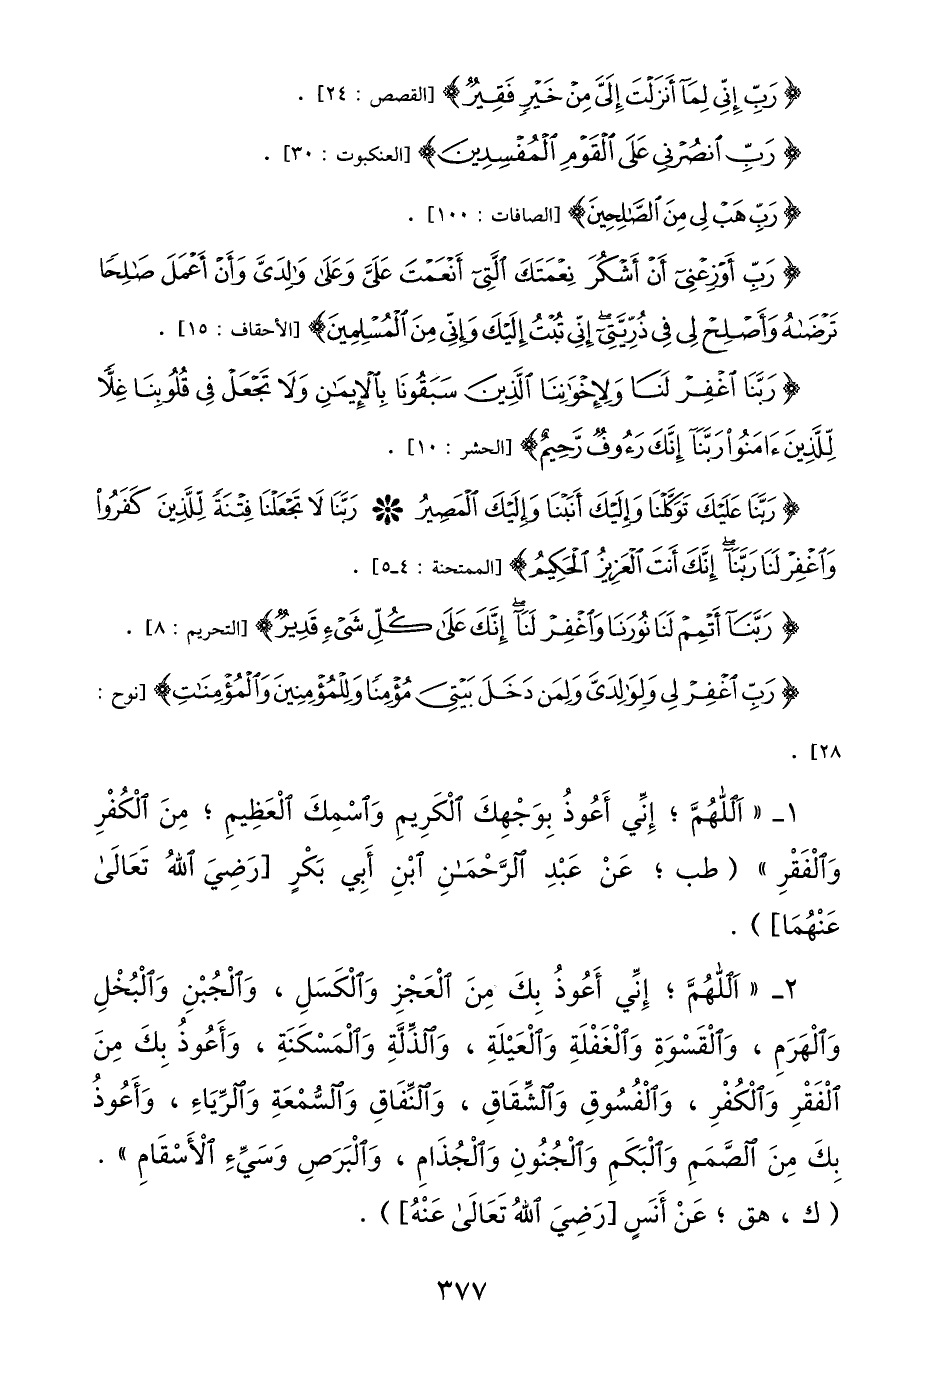 ﴿ رَبِّ إِنِّي لِمَآ أَنزَلْتَ إِلَيَّ مِنْ خَيْرٍ فَقِيرٌ ﴾ [القصص : ٢٤] .
﴿ رَبِّ ٱنصُرْنِي عَلَى ٱلْقَوْمِ ٱلْمُفْسِدِينَ ﴾ [العنكبوت : ٣٠] .
﴿ رَبِّ هَبْ لِي مِنَ ٱلصَّٰلِحِينَ ﴾ [الصافات : ١٠٠] .
﴿ رَبِّ أَوْزِعْنِيٓ أَنْ أَشْكُرَ نِعْمَتَكَ ٱلَّتِيٓ أَنْعَمْتَ عَلَيَّ وَعَلَىٰ وَٰلِدَيَّ وَأَنْ أَعْمَلَ صَٰلِحًا
تَرْضَىٰهُ وَأَصْلِحْ لِي فِي ذُرِّيَّتِيٓۖ إِنِّي تُبْتُ إِلَيْكَ وَإِنِّي مِنَ ٱلْمُسْلِمِينَ ﴾ [الأحقاف : ١٥] .
﴿ رَبَّنَا ٱغْفِرْ لَنَا وَلِإِخْوَٰنِنَا ٱلَّذِينَ سَبَقُونَا بِٱلْإِيمَٰنِ وَلَا تَجْعَلْ فِي قُلُوبِنَا غِلًّا
لِّلَّذِينَ ءَامَنُوا۟ رَبَّنَآ إِنَّكَ رَءُوفٌ رَّحِيمٌ ﴾ [الحشر : ١٠] .
﴿ رَبَّنَا عَلَيْكَ تَوَكَّلْنَا وَإِلَيْكَ أَنَبْنَا وَإِلَيْكَ ٱلْمَصِيرُ ❊ رَبَّنَا لَا تَجْعَلْنَا فِتْنَةً لِّلَّذِينَ كَفَرُوا۟
وَٱغْفِرْ لَنَا رَبَّنَآۖ إِنَّكَ أَنتَ ٱلْعَزِيزُ ٱلْحَكِيمُ ﴾ [الممتحنة : ٤-٥] .
﴿ رَبَّنَآ أَتْمِمْ لَنَا نُورَنَا وَٱغْفِرْ لَنَآۖ إِنَّكَ عَلَىٰ كُلِّ شَيْءٍ قَدِيرٌ ﴾ [التحريم : ٨] .
﴿ رَبِّ ٱغْفِرْ لِي وَلِوَٰلِدَيَّ وَلِمَن دَخَلَ بَيْتِيَ مُؤْمِنًا وَلِلْمُؤْمِنِينَ وَٱلْمُؤْمِنَٰتِ ﴾ [نوح :
٢٨] .
١ـ « ٱَللّٰهُمَّ ؛ إِنِّي أَعُوذُ بِوَجْهِكَ ٱلْكَرِيمِ وَٱسْمِكَ ٱلْعَظِيمِ ؛ مِنَ ٱلْكُفْرِ
وَٱلْفَقْرِ » ( طب ؛ عَنْ عَبْدِ ٱلرَّحْمَـٰنِ ٱبْنِ أَبِي بَكْرٍ [رَضِيَ ٱللهُ تَعَالَىٰ
عَنْهُمَا] ) .
٢ـ « ٱَللّٰهُمَّ ؛ إِنِّي أَعُوذُ بِكَ مِنَ ٱلْعَجْزِ وَٱلْكَسَلِ ، وَٱلْجُبْنِ وَٱلْبُخْلِ
وَٱلْهَرَمِ ، وَٱلْقَسْوَةِ وَٱلْغَفْلَةِ وَٱلْعَيْلَةِ ، وَٱلذِّلَّةِ وَٱلْمَسْكَنَةِ ، وَأَعُوذُ بِكَ مِنَ
ٱلْفَقْرِ وَٱلْكُفْرِ ، وَٱلْفُسُوقِ وَٱلشِّقَاقِ ، وَٱلنِّفَاقِ وَٱلسُّمْعَةِ وَٱلرِّيَاءِ ، وَأَعُوذُ
بِكَ مِنَ ٱلصَّمَمِ وَٱلْبَكَمِ وَٱلْجُنُونِ وَٱلْجُذَامِ ، وَٱلْبَرَصِ وَسَيِّءِ ٱلْأَسْقَامِ » .
( ك ، هق ؛ عَنْ أَنَسٍ [رَضِيَ ٱللهُ تَعَالَىٰ عَنْهُ] ) .
٣٧٧